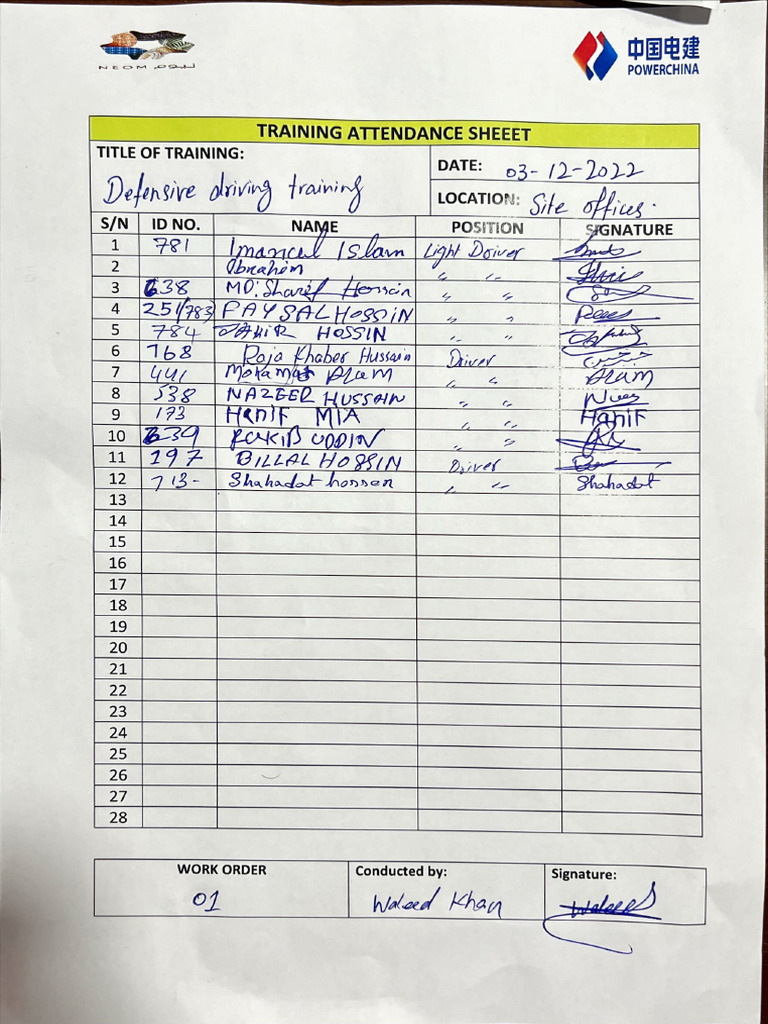 NEOM نيوم
中国电建
POWERCHINA
TRAINING ATTENDANCE SHEEET
TITLE OF TRAINING:
Defensive driving training
DATE: 03-12-2022
LOCATION: Site offices.
S/N ID NO. NAME POSITION SIGNATURE
1 781 Islam Light Driver
2 Ibrahim " "
3 638 MD. Sharif Hossain " "
4 251/783 FAYSAL HOSSIN " "
5 784 JAHIR HOSSIN " "
6 768 Raja Khaber Hussain Driver
7 441 Alam " " Alam
8 538 NAZEER HUSSAIN " "
9 173 HANIF MIA " " HANIF
10 639 RAKIB UDDIN " "
11 197 BILLAL HOSSIN Driver
12 713- Shahadat hossen " " Shahadat
13
14
15
16
17
18
19
20
21
22
23
24
25
26
27
28
WORK ORDER Conducted by: Signature:
01 Waleed Khan Waleed